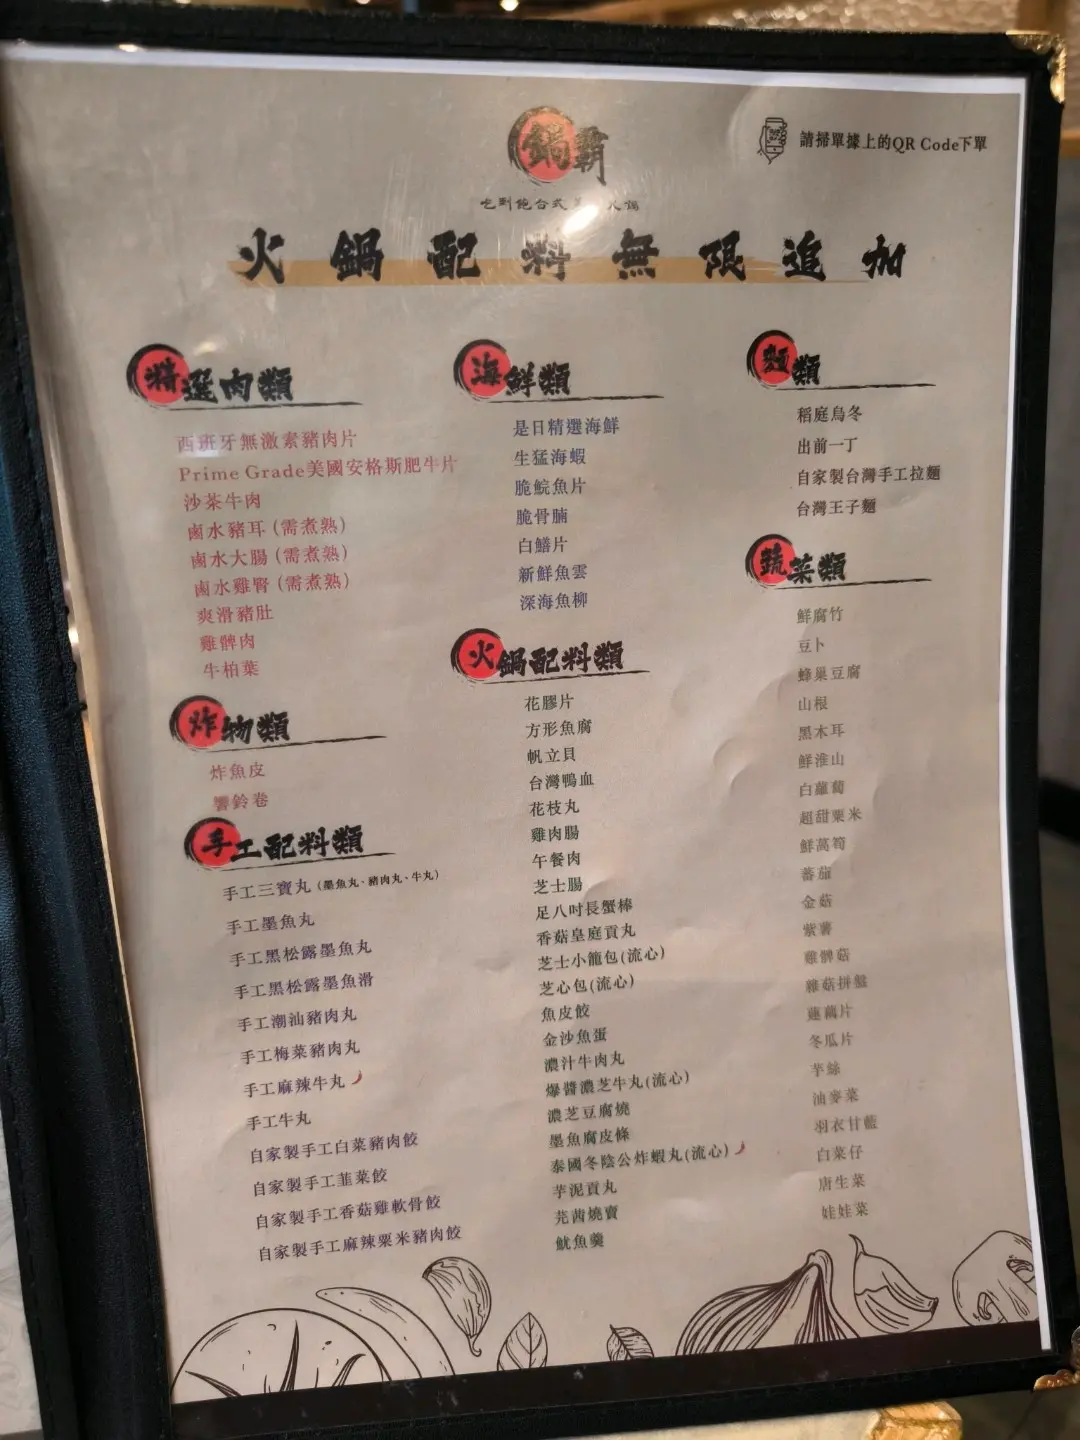 鍋霸
請掃單據上的QR Code下單
吃到飽台式 火鍋
火鍋配料無限追加
精選肉類
西班牙無激素豬肉片
Prime Grade美國安格斯肥牛片
沙茶牛肉
鹵水豬耳 (需煮熟)
鹵水大腸 (需煮熟)
鹵水雞腎 (需煮熟)
爽滑豬肚
雞髀肉
牛柏葉
炸物類
炸魚皮
響鈴卷
手工配料類
手工三寶丸 (墨魚丸、豬肉丸、牛丸)
手工墨魚丸
手工黑松露墨魚丸
手工黑松露墨魚滑
手工潮汕豬肉丸
手工梅菜豬肉丸
手工麻辣牛丸
手工牛丸
自家製手工白菜豬肉餃
自家製手工韮菜餃
自家製手工香菇雞軟骨餃
自家製手工麻辣粟米豬肉餃
海鮮類
是日精選海鮮
生猛海蝦
脆鯇魚片
脆骨腩
白鱔片
新鮮魚雲
深海魚柳
火鍋配料類
花膠片
方形魚腐
帆立貝
台灣鴨血
花枝丸
雞肉腸
午餐肉
芝士腸
足八吋長蟹棒
香菇皇庭貢丸
芝士小籠包(流心)
芝心包(流心)
魚皮餃
金沙魚蛋
濃汁牛肉丸
爆醬濃芝牛丸(流心)
濃芝豆腐燒
墨魚腐皮條
泰國冬陰公炸蝦丸(流心)
芋泥貢丸
芫茜燒賣
魷魚羹
麵類
稻庭烏冬
出前一丁
自家製台灣手工拉麵
台灣王子麵
蔬菜類
鮮腐竹
豆卜
蜂巢豆腐
山根
黑木耳
鮮淮山
白蘿蔔
超甜粟米
鮮萵筍
蕃茄
金菇
紫薯
雞髀菇
雜菇拼盤
蓮藕片
冬瓜片
芋絲
油麥菜
羽衣甘藍
白菜仔
唐生菜
娃娃菜